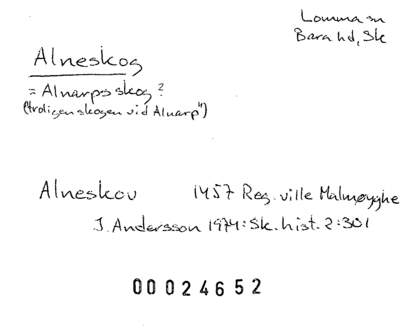 Lomma sn
Bara hd, Sk
Alneskog
= Alnarps skog?
("troligen skogen vid Alnarp")
Alneskou 1457 Reg. ville Malmøyghe
J. Andersson 1974: Sk. hist. 2:301
00024652